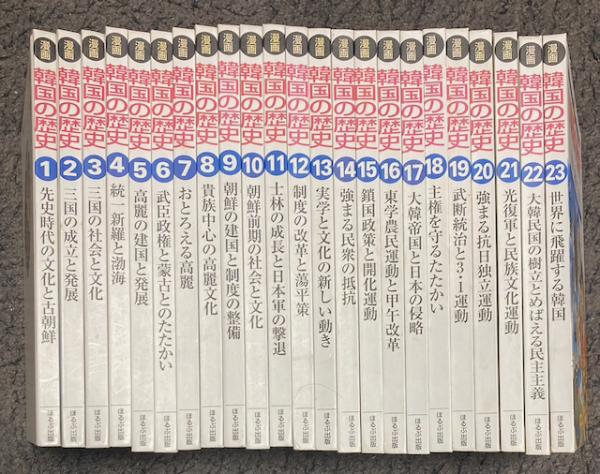 漫画 韓国の歴史 1 先史時代の文化と古朝鮮 ほるぷ出版
漫画 韓国の歴史 2 三国の成立と発展 ほるぷ出版
漫画 韓国の歴史 3 三国の社会と文化 ほるぷ出版
漫画 韓国の歴史 4 統一新羅と渤海 ほるぷ出版
漫画 韓国の歴史 5 高麗の建国と発展 ほるぷ出版
漫画 韓国の歴史 6 武臣政権と蒙古とのたたかい ほるぷ出版
漫画 韓国の歴史 7 おとろえる高麗 ほるぷ出版
漫画 韓国の歴史 8 貴族中心の高麗文化 ほるぷ出版
漫画 韓国の歴史 9 朝鮮の建国と制度の整備 ほるぷ出版
漫画 韓国の歴史 10 朝鮮前期の社会と文化 ほるぷ出版
漫画 韓国の歴史 11 士林の成長と日本軍の撃退 ほるぷ出版
漫画 韓国の歴史 12 制度の改革と蕩平策 ほるぷ出版
漫画 韓国の歴史 13 実学と文化の新しい動き ほるぷ出版
漫画 韓国の歴史 14 強まる民衆の抵抗 ほるぷ出版
漫画 韓国の歴史 15 鎖国政策と開化運動 ほるぷ出版
漫画 韓国の歴史 16 東学農民運動と甲午改革 ほるぷ出版
漫画 韓国の歴史 17 大韓帝国と日本の侵略 ほるぷ出版
漫画 韓国の歴史 18 主権を守るたたかい ほるぷ出版
漫画 韓国の歴史 19 武断統治と3・1運動 ほるぷ出版
漫画 韓国の歴史 20 強まる抗日独立運動 ほるぷ出版
漫画 韓国の歴史 21 光復軍と民族文化運動 ほるぷ出版
漫画 韓国の歴史 22 大韓民国の樹立とめばえる民主主義 ほるぷ出版
漫画 韓国の歴史 23 世界に飛躍する韓国 ほるぷ出版